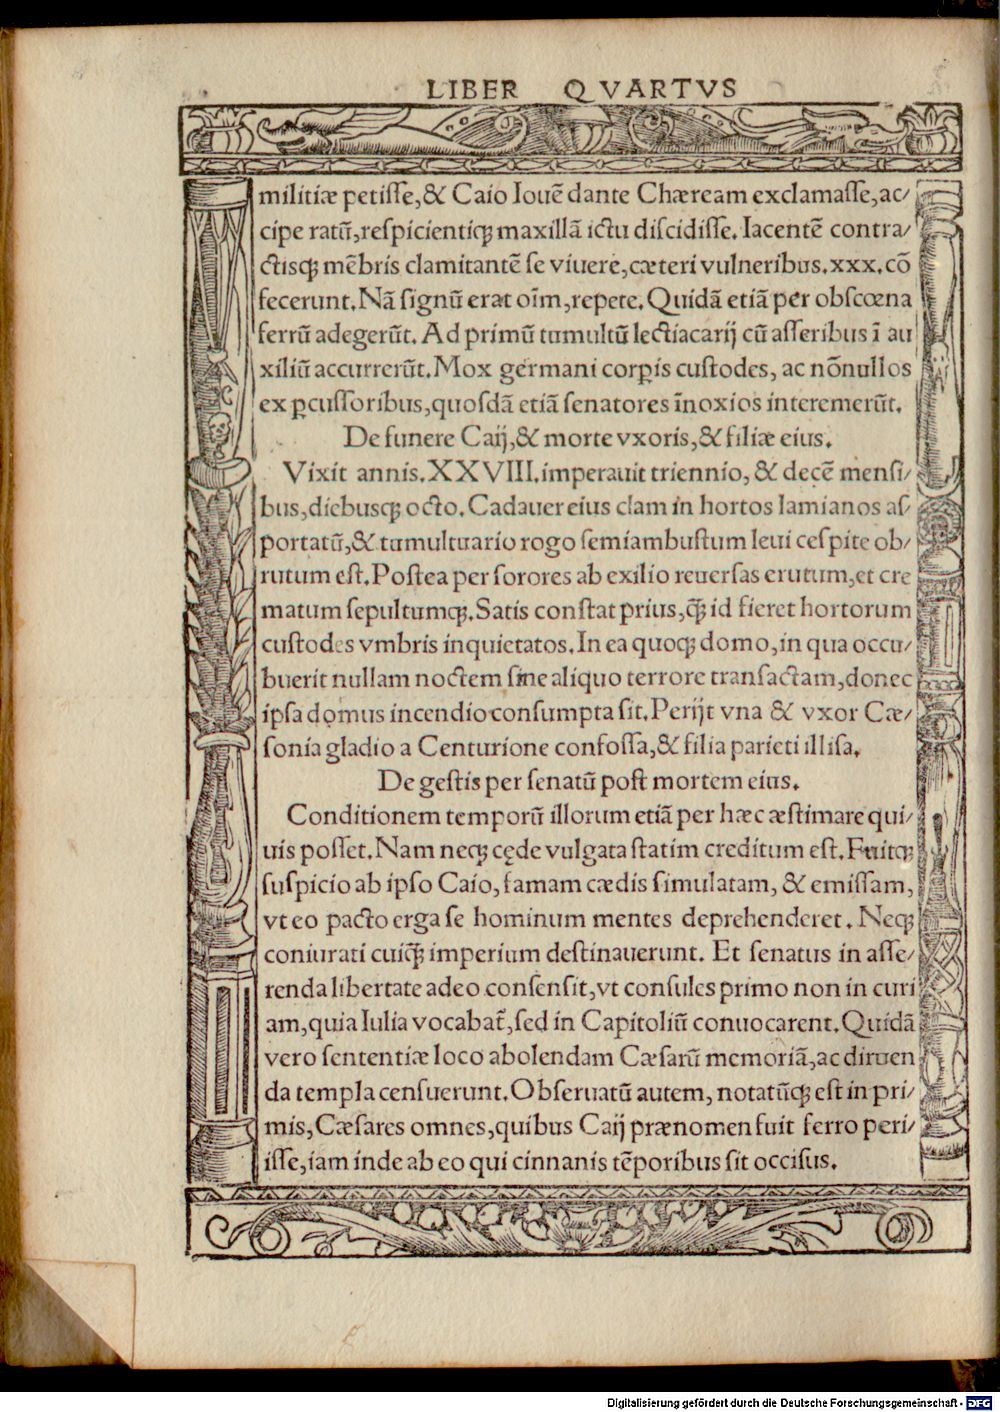 LIBER QVARTVS
militiæ petiſſe,& Caio Iouē dante Chæream exclamaſſe,ac/
cipe ratū,reſpicientiqꝫ maxillā ictu diſcidiſſe.Iacentē contra/
ctisqꝫ mēbris clamitantē ſe viuere,cæteri vulneribus.xxx.cō
fecerunt.Nā ſignū erat oīm,repete.Quidā etiā per obſcœna
ferrū adegerūt.Ad primū tumultū lectiacarij cū aſſeribus ī au
xiliū accurrerūt.Mox germani corꝑis cuſtodes, ac nōnullos
ex ꝑcuſſoribus,quoſdā etiā ſenatores īnoxios interemerūt.
De funere Caij,& morte vxoris,& filiæ eius.
Vixit annis.XXVIII.imperauit triennio, & decē menſi/
bus,diebusqꝫ octo.Cadauer eius clam in hortos lamianos aſ/
portatū,& tumultuario rogo ſemiambuſtum leui ceſpite ob/
rutum eſt.Poſtea per ſorores ab exilio reuerſas erutum,et cre
matum ſepultumqꝫ.Satis conſtat prius,q̄ꝫ id fieret hortorum
cuſtodes vmbris inquietatos.In ea quoqꝫ domo,in qua occu/
buerit nullam noctem ſine aliquo terrore tranſactam,donec
ipſa domus incendio conſumpta ſit.Perijt vna & vxor Cæ/
ſonia gladio a Centurione confoſſa,& filia parieti illiſa.
De geſtis per ſenatū poſt mortem eius.
Conditionem temporū illorum etiā per hæc æſtimare qui/
uis poſſet.Nam neqꝫ cęde vulgata ſtatim creditum eſt.Fuitqꝫ
ſuſpicio ab ipſo Caio, famam cædis ſimulatam, & emiſſam,
vt eo pacto erga ſe hominum mentes deprehenderet. Neqꝫ
coniurati cuiq̄ꝫ imperium deſtinauerunt. Et ſenatus in aſſe/
renda libertate adeo conſenſit,vt conſules primo non in curi
am,quia Iulia vocabat᷑,ſed in Capitoliū conuocarent.Quidā
vero ſententiæ loco abolendam Cæſarū memoriā,ac diruen
da templa cenſuerunt.Obſeruatū autem, notatūqꝫ eſt in pri/
mis,Cæſares omnes,quibus Caij prænomen fuit ferro peri/
iſſe,iam inde ab eo qui cinnanis tēporibus ſit occiſus.
Digitalisierung gefördert durch die Deutsche Forschungsgemeinschaft - DFG